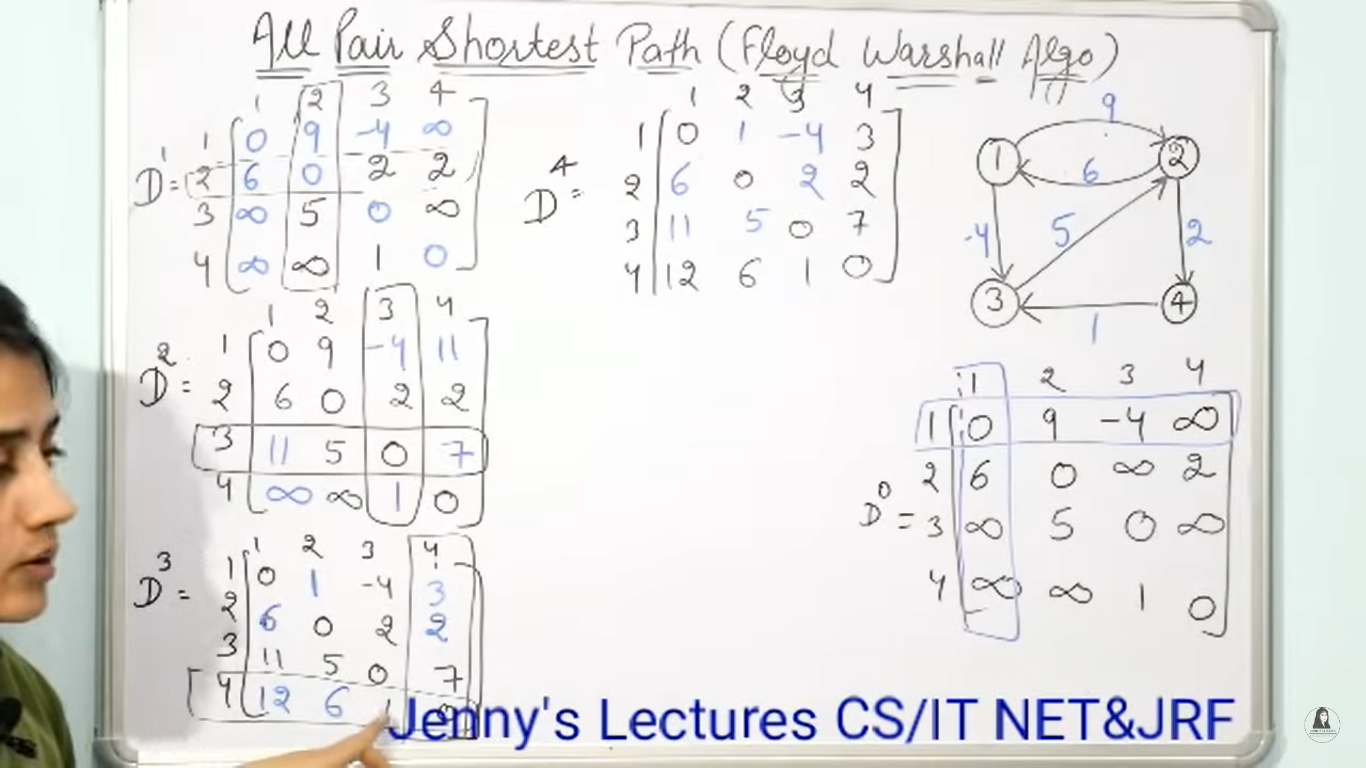 All Pair Shortest Path (Floyd Warshall Algo)
1 2 3 4
D¹ =
1 0 9 -4 ∞
2 6 0 2 2
3 ∞ 5 0 ∞
4 ∞ ∞ 1 0
1 2 3 4
D² =
1 0 9 -4 11
2 6 0 2 2
3 11 5 0 7
4 ∞ ∞ 1 0
1 2 3 4
D³ =
1 0 1 -4 3
2 6 0 2 2
3 11 5 0 7
4 12 6 1 0
1 2 3 4
D⁴ =
1 0 1 -4 3
2 6 0 2 2
3 11 5 0 7
4 12 6 1 0
9
1 2
6
-4 5 2
3 4
1
1 2 3 4
1 0 9 -4 ∞
2 6 0 ∞ 2
D⁰ =
3 ∞ 5 0 ∞
4 ∞ ∞ 1 0
Jenny's Lectures CS/IT NET&JRF